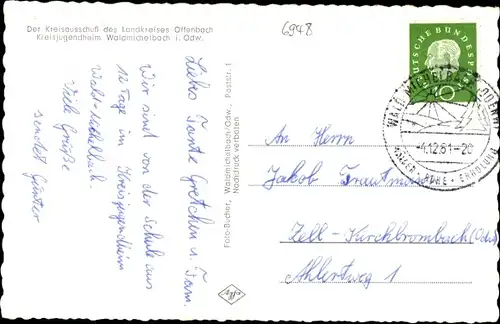 Der Kreisausschuß des Landkreises Offenbach
Kreisjugendheim Waldmichelbach i. Odw.
6948
Liebe Tante Gretchen u. Fam.
Wir sind von der Schule aus
12 Tage im Kreisjugendheim
Wald-Michelbach.
Viele Grüße
sendet Günter
Foto-Bucher, Waldmichelbach/Odw., Poststr. 1
Nachdruck verboten
DEUTSCHE BUNDESPOST
10
WALD-MICHELBACH (ODENW)
-4.12.61-20
WASSER · RUHE · ERHOLUNG
An Herrn
Jakob Trautmann
Zell-Kirchbrombach (Odw)
Ahlertweg 1